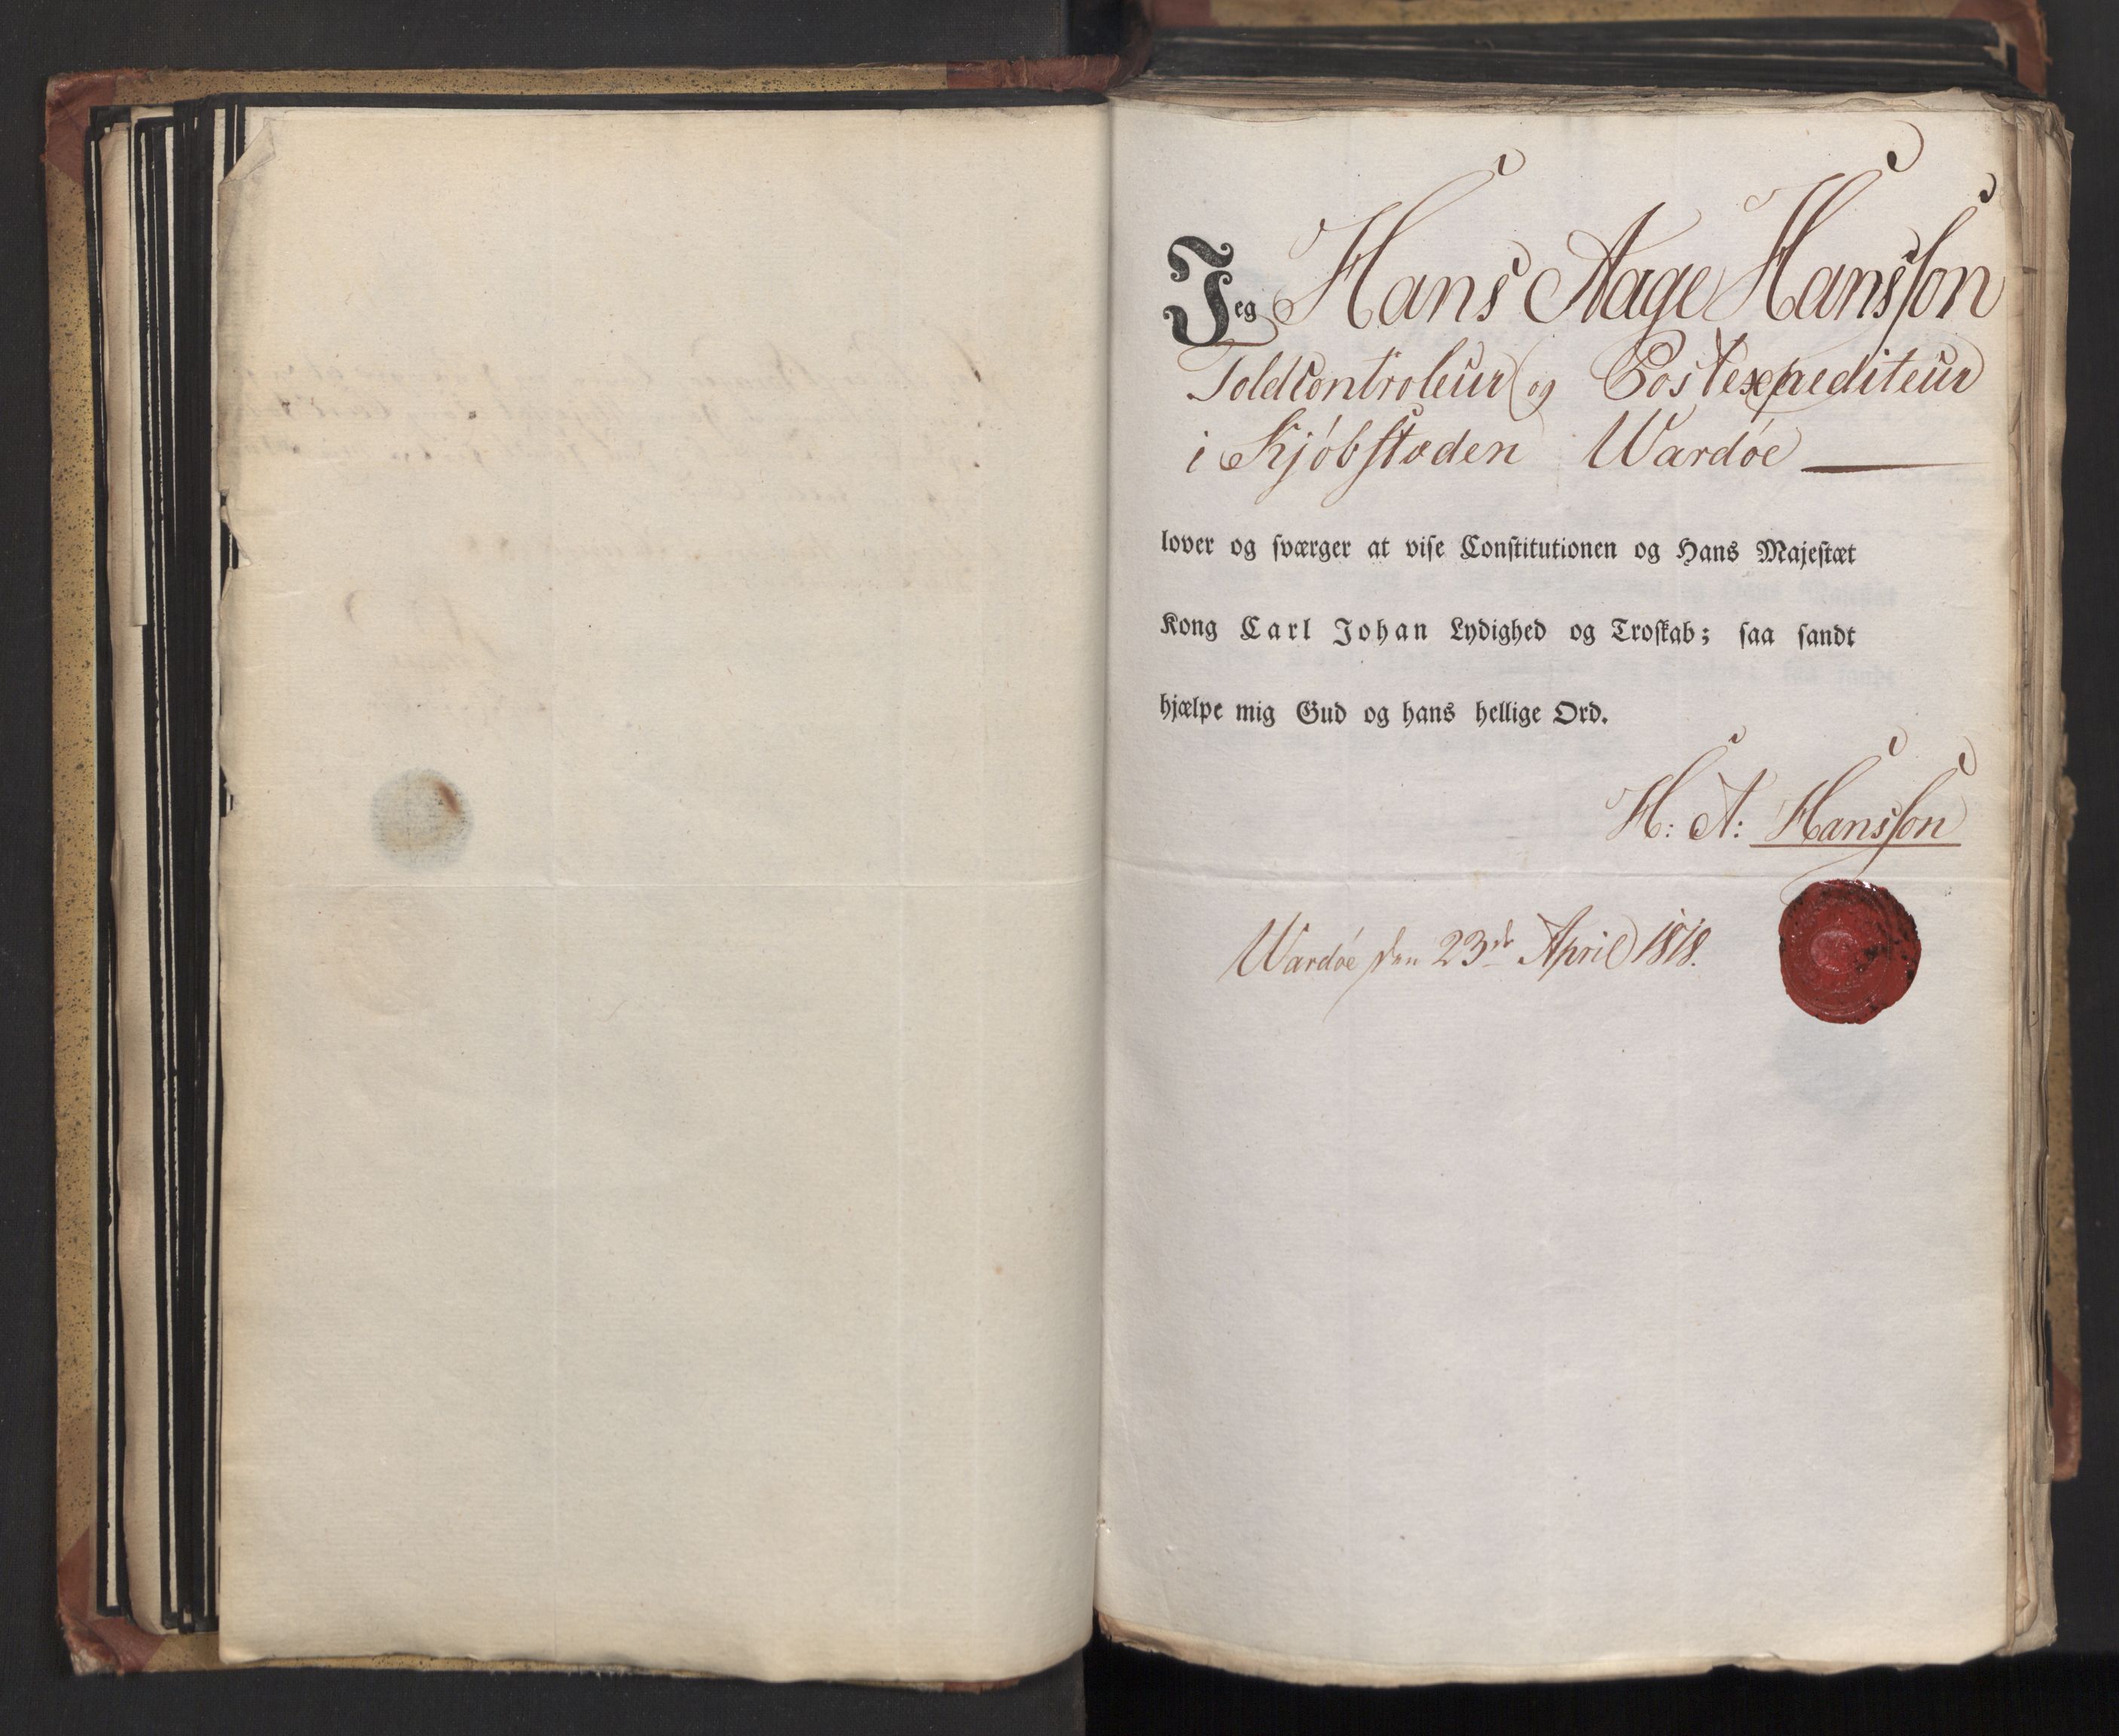 Jeg Hans Aage Hansson
Toldcontroleur og Postexpediteur
i Kjöbstæden Wardöe
lover og sværger at vise Constitutionen og Hans Majestæt
Kong Carl Johan Lydighed og Troskab; saa sandt
hjælpe mig Gud og hans hellige Ord.
H: A: Hansson
Wardöe den 23de April 1818.